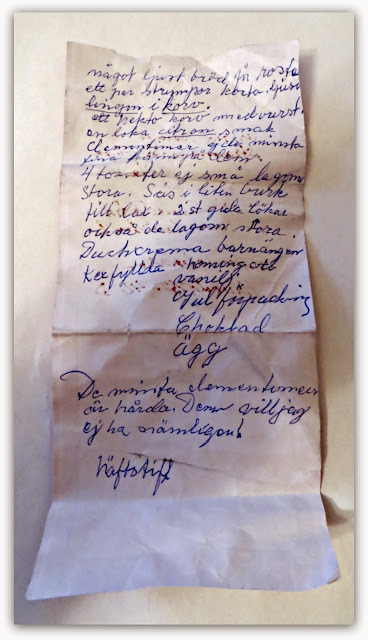 något ljust bröd för rosta
ett par strumpor korta ljusa
lingon i korv.
ett hekto korv medvurst.
en loka citron smak
clementiner ej de minsta
på dem
4 tomater ej små lagom
stora. Sås i liten burk
till lax. 2 st gula lökar
också de lagom stora.
Duschcrema barnängen
Kexfyllda
vanilj
Gul förpackning
Choklad
ägg
De minsta clementinerna
är hårda. Dem vill jag
ej ha nämligen!
Häftstift